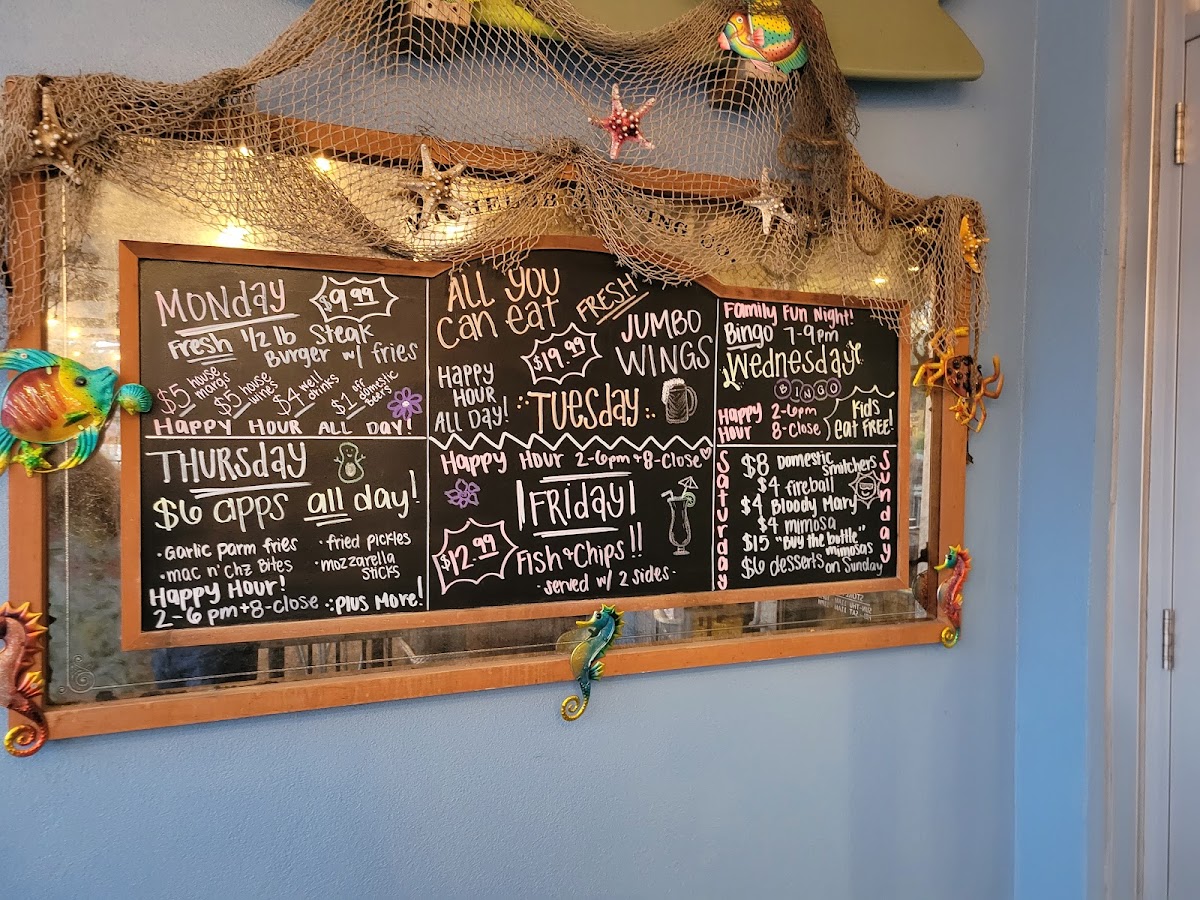 MONDAY $9.99
Fresh 1/2 lb Steak
Burger w/ fries
$5 house margs $5 house wines $4 well drinks $1 off domestic beers
HAPPY HOUR ALL DAY!
ALL YOU
can eat FRESH
$19.99 JUMBO
WINGS
HAPPY
HOUR
ALL DAY!
TUESDAY
Family Fun Night!
Bingo 7-9pm
Wednesday!
BINGO
Happy Hour 2-6pm
8-Close
Kids
eat FREE!
THURSDAY
$6 apps all day!
·Garlic Parm fries
·mac n' chz Bites
·fried pickles
·mozzarella
sticks
Happy Hour!
2-6pm+8-close ·:Plus More!
Happy Hour 2-6pm+8-Close
FRIDAY
$12.99 Fish+Chips!!
-served w/ 2 sides-
Saturday
$8 Domestic
$4 fireball
$4 Bloody Mary
$4 mimosa
$15 "Buy the bottle"
mimosas
$6 desserts on Sunday
Sunday